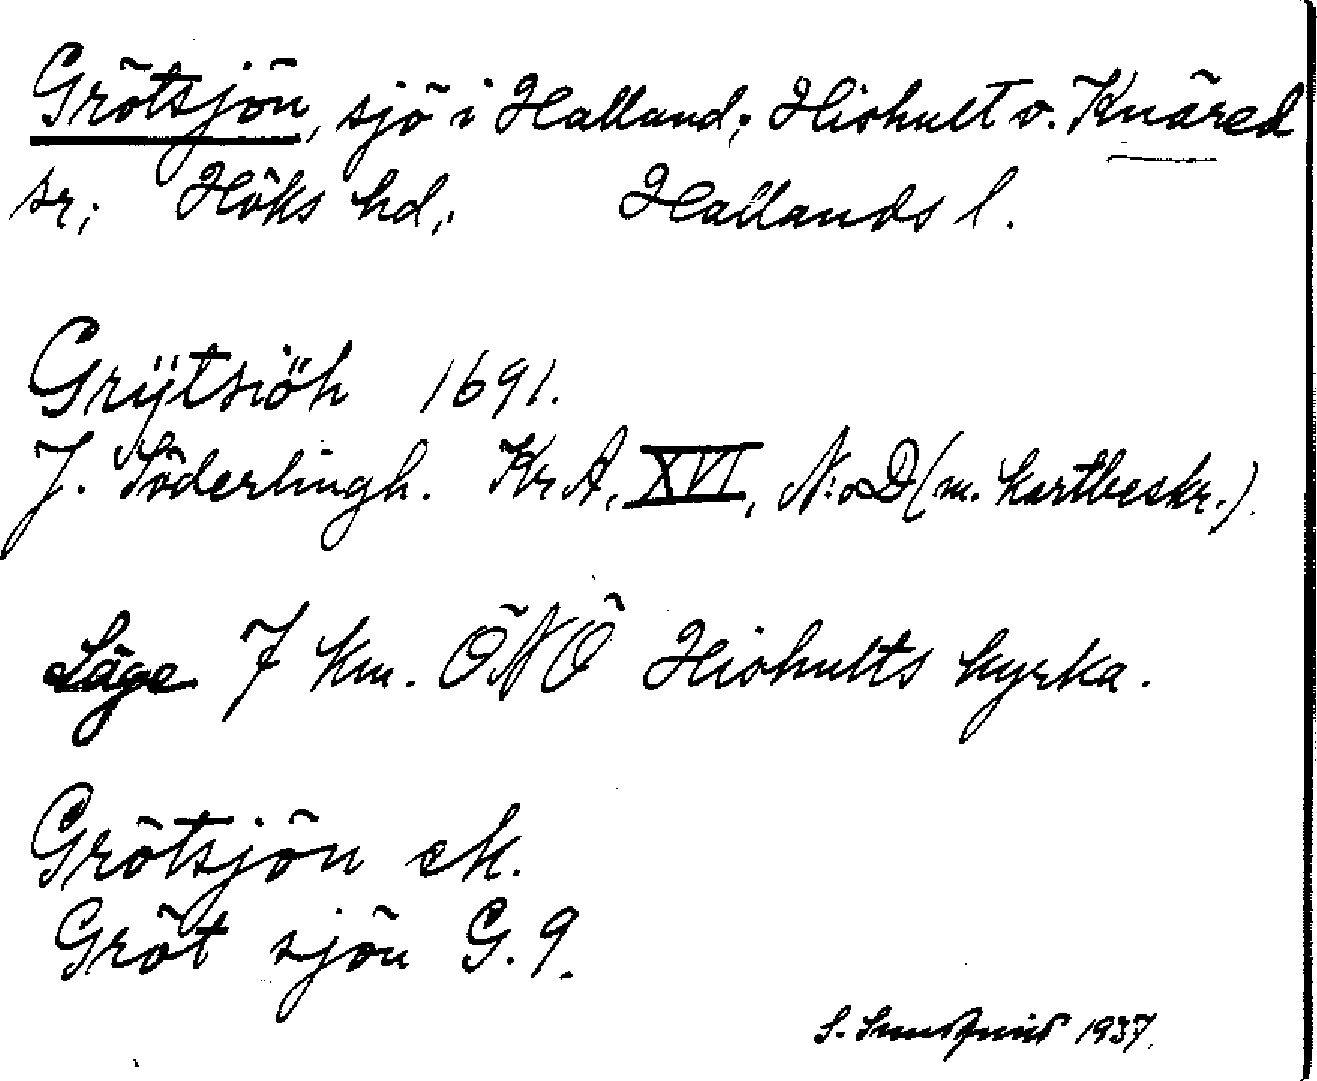 Grötsjön, sjö i Halland; Hishult o. Knäred
sr; Höks hd; Hallands l.
Grÿtsiöh 1691.
J. Söderlingh. KrA, XVI, N:o D (m. kartbeskr.).
Läge 7 km. ÖNÖ Hishults kyrka.
Grötsjön ek.
Gröt sjön G. 9.
S. Sundqvist 1937.